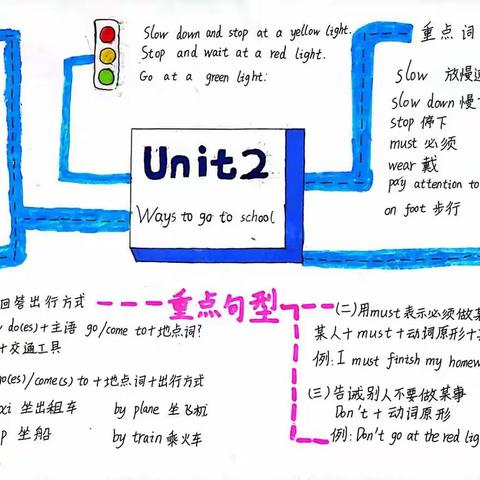 Slow down and stop at a yellow light.
Stop and wait at a red light.
Go at a green light:
重点词
slow 放慢速
slow down 慢下
stop 停下
must 必须
wear 戴
pay attention to
on foot 步行
Unit2
Ways to go to school
回答出行方式
do(es)+主语 go/come to+地点词?
+交通工具
go(es)/come(s) to +地点词+出行方式
xi 坐出租车
by plane 坐飞机
p 坐船
by train 乘火车
重点句型
(二)用must表示必须做某
某人+must+动词原形+
例:I must finish my homew
(三)告诫别人不要做某事
Don't+动词原形
例:Don't go at the red lig